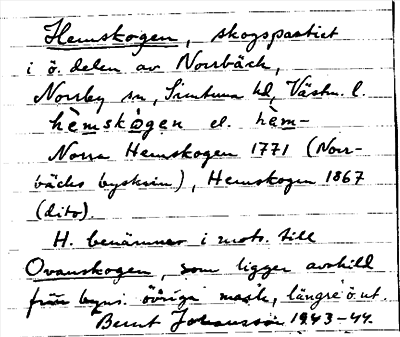 Hemskogen, skogsparti
i ö. delen av Norrbäck,
Norrby sn, Simtuna hd, Västm. l.
hèmskògen el. hèm-
Norra Hemskogen 1771 (Norr-
bäcks byskrin), Hemskogen 1867
(dito).
H. benämnes i mots. till
Ovanskogen, som ligger avskild
från byns övriga mark, längre ö. ut.
Bernt Johansson 1943-44.